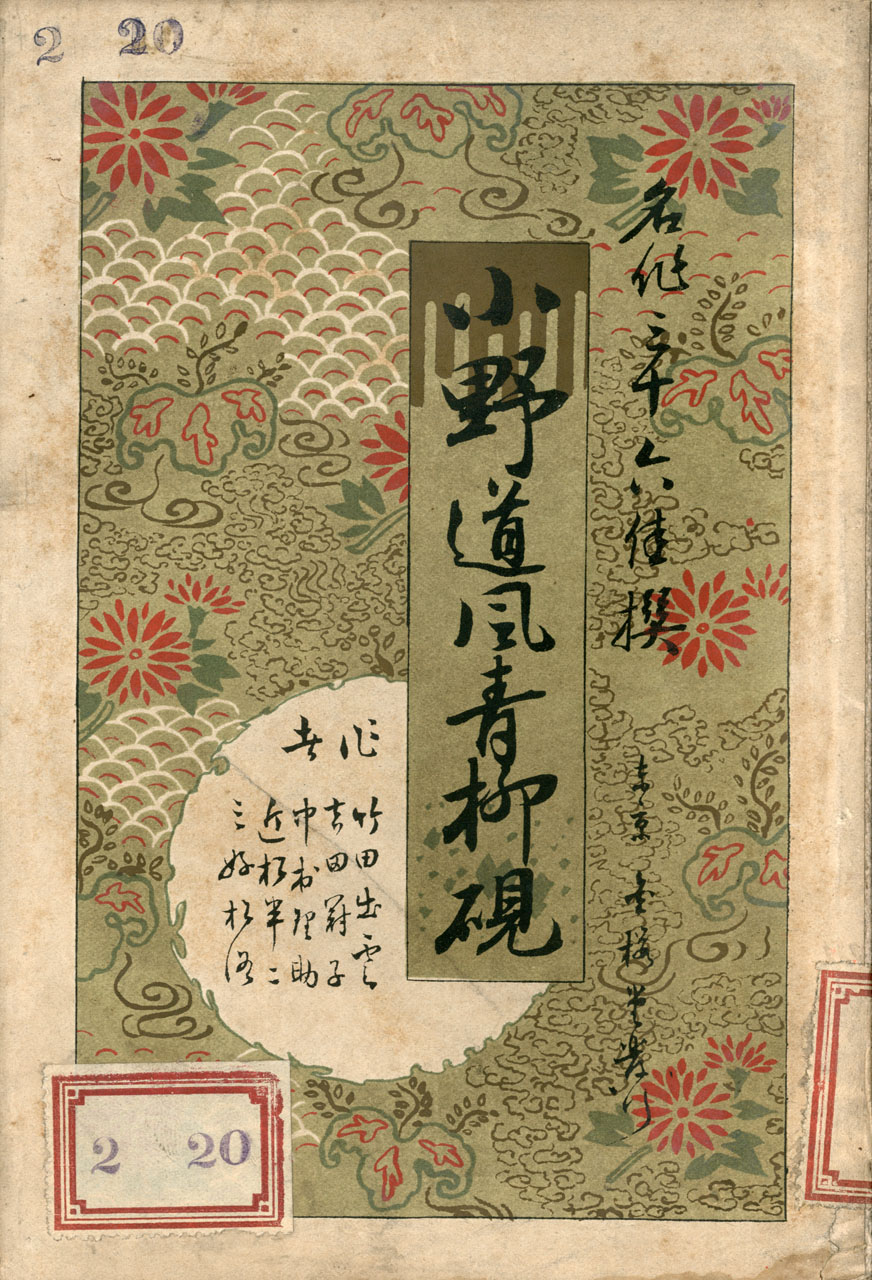 2 20
名作三十六佳撰
東京 金桜堂発行
小野道風青柳硯
作者
竹田出雲
吉田冠子
中邑理助
近松半二
三好松洛
2 20